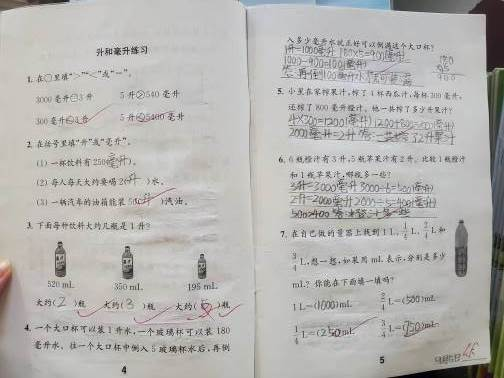 升和毫升练习
1. 在○里填“>”“<”或“=”。
3000毫升=3升 5升>540毫升
300毫升<3升 5升<5400毫升
2. 在括号里填“升”或“毫升”。
(1) 一杯饮料有250(毫升)。
(2) 每人每天大约要喝2(升)水。
(3) 一辆汽车的油箱能装50(升)汽油。
3. 下面每种饮料大约几瓶是1升?
520 mL 350 mL 195 mL
大约(2)瓶 大约(3)瓶 大约(5)瓶
4. 一个大口杯可以装1升水,一个玻璃杯可以装180
毫升水。往一个大口杯中倒入5玻璃杯水后,再倒
4
入多少毫升水就正好可以倒满这个大口杯?
1升=1000毫升 180×5=900(毫升)
1000-900=100(毫升)
答:再倒100毫升
5. 小星在家榨果汁,榨了4杯西瓜汁,每杯300毫升,
还榨了800毫升橙汁。他一共榨了多少升果汁?
4×300=1200(毫升) 1200+800=2000(毫升)
2000毫升=2升 答:一共榨了2升果汁
6. 6瓶橙汁有3升,5瓶苹果汁有2升。比较1瓶橙汁
和1瓶苹果汁,哪瓶多一些?
3升=3000毫升 3000÷6=500(毫升)
2升=2000毫升 2000÷5=400(毫升)
500>400 答:
7. 在自己做的量器上找到1 L、1/2 L、1/4 L和
3/4 L,想一想,如果用mL表示,分别是多少
mL?你能在下面填一填吗?
1 L=(1000)mL 2/4 L=(500)mL
1/4 L=(250)mL 3/4 L=(750)mL
5